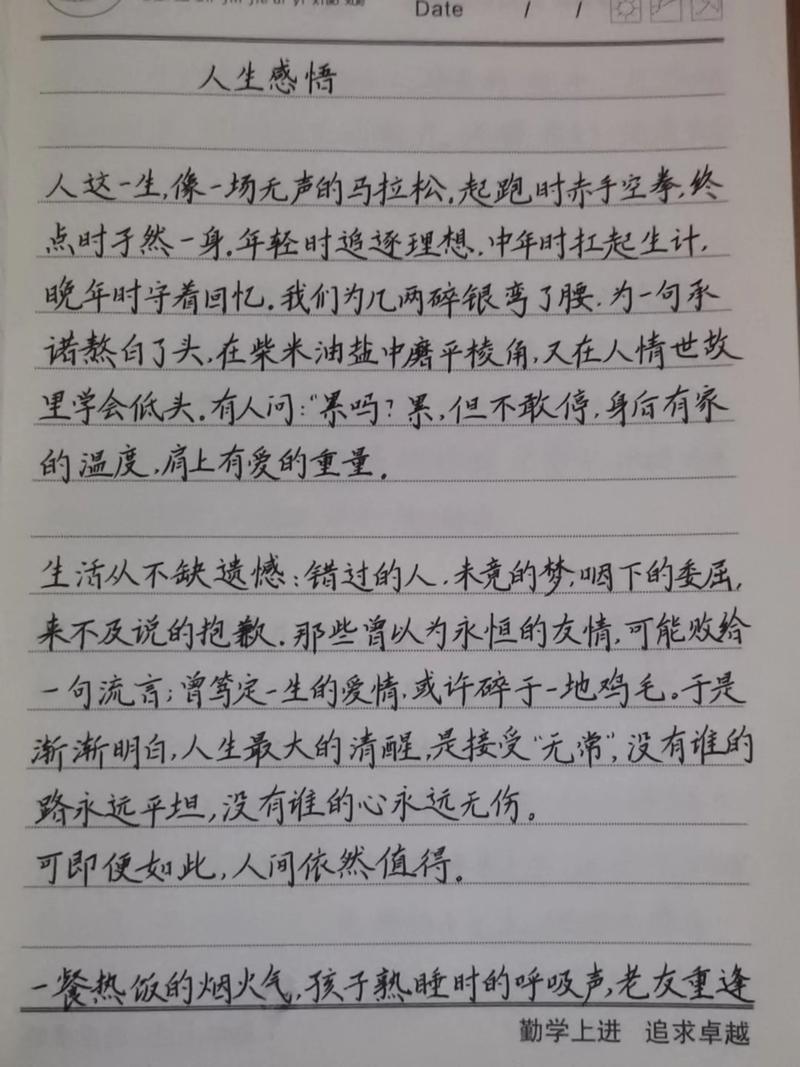 Date / /
人生感悟
人这一生,像一场无声的马拉松.起跑时赤手空拳,终
点时孑然一身.年轻时追逐理想.中年时扛起生计,
晚年时守着回忆.我们为几两碎银弯了腰.为一句承
诺熬白了头,在柴米油盐中磨平棱角,又在人情世故
里学会低头.有人问:"累吗?累,但不敢停,身后有家
的温度,肩上有爱的重量.
生活从不缺遗憾:错过的人.未竟的梦,咽下的委屈,
来不及说的抱歉.那些曾以为永恒的友情,可能败给
一句流言;曾笃定一生的爱情,或许碎于一地鸡毛。于是
渐渐明白,人生最大的清醒,是接受"无常",没有谁的
路永远平坦,没有谁的心永远无伤。
可即便如此,人间依然值得。
一餐热饭的烟火气,孩子熟睡时的呼吸声,老友重逢
勤学上进 追求卓越